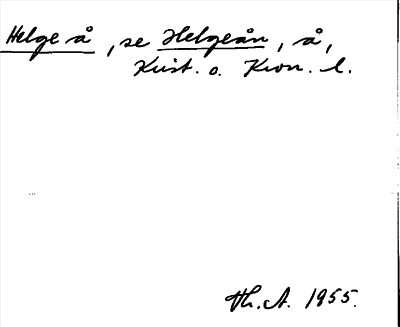 Helge å, se Helgeån, å,
Krist. o. Kron. l.
Th. A. 1955.